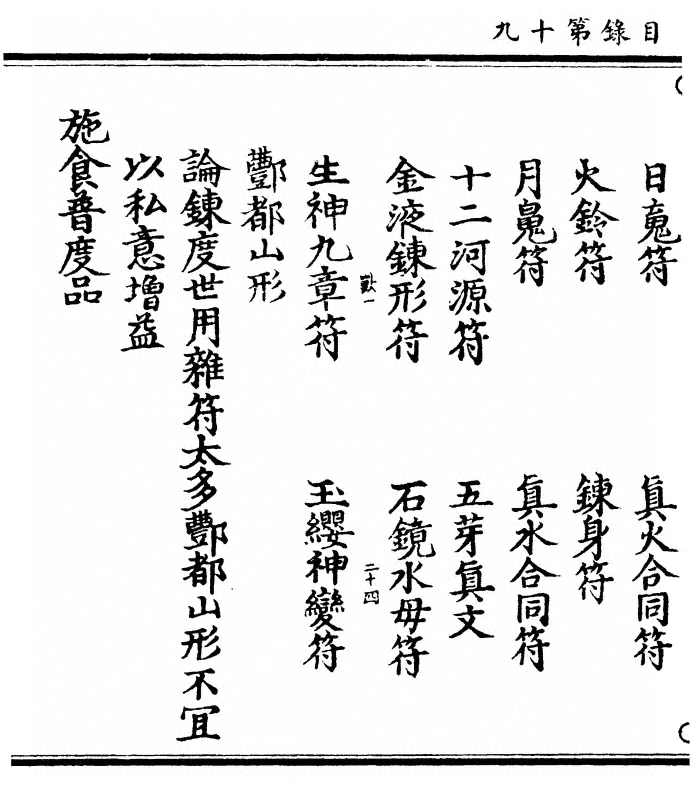 目錄第十九
日䰟符　眞火合同符
火鈴符　鍊身符
月魄符　眞水合同符
十二河源符　五芽眞文
金液鍊形符　石鏡水母符
歎一　二十四
生神九章符　玉纓神變符
酆都山形
論鍊度世用雜符太多酆都山形不冝
以私意增益
施食普度品